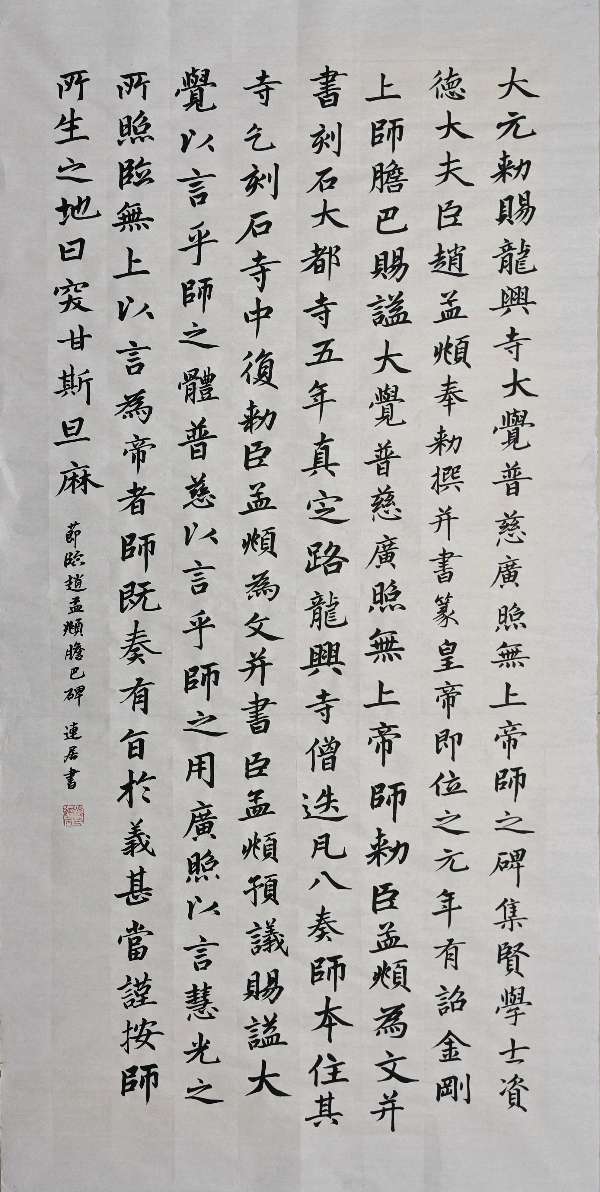 大元勅賜龍興寺大覺普慈廣照無上帝師之碑集賢學士資
德大夫臣趙孟頫奉勅撰并書篆皇帝即位之元年有詔金剛
上師膽巴賜謚大覺普慈廣照無上帝師勅臣孟頫為文并
書刻石大都寺五年真定路龍興寺僧迭凡八奏師本住其
寺乞刻石寺中復勅臣孟頫為文并書臣孟頫預議賜謚大
覺以言乎師之體普慈以言乎師之用廣照以言慧光之
所照臨無上以言為帝者師既奏有旨於義甚當謹按師
所生之地曰突甘斯旦麻
節臨趙孟頫膽巴碑 連居書